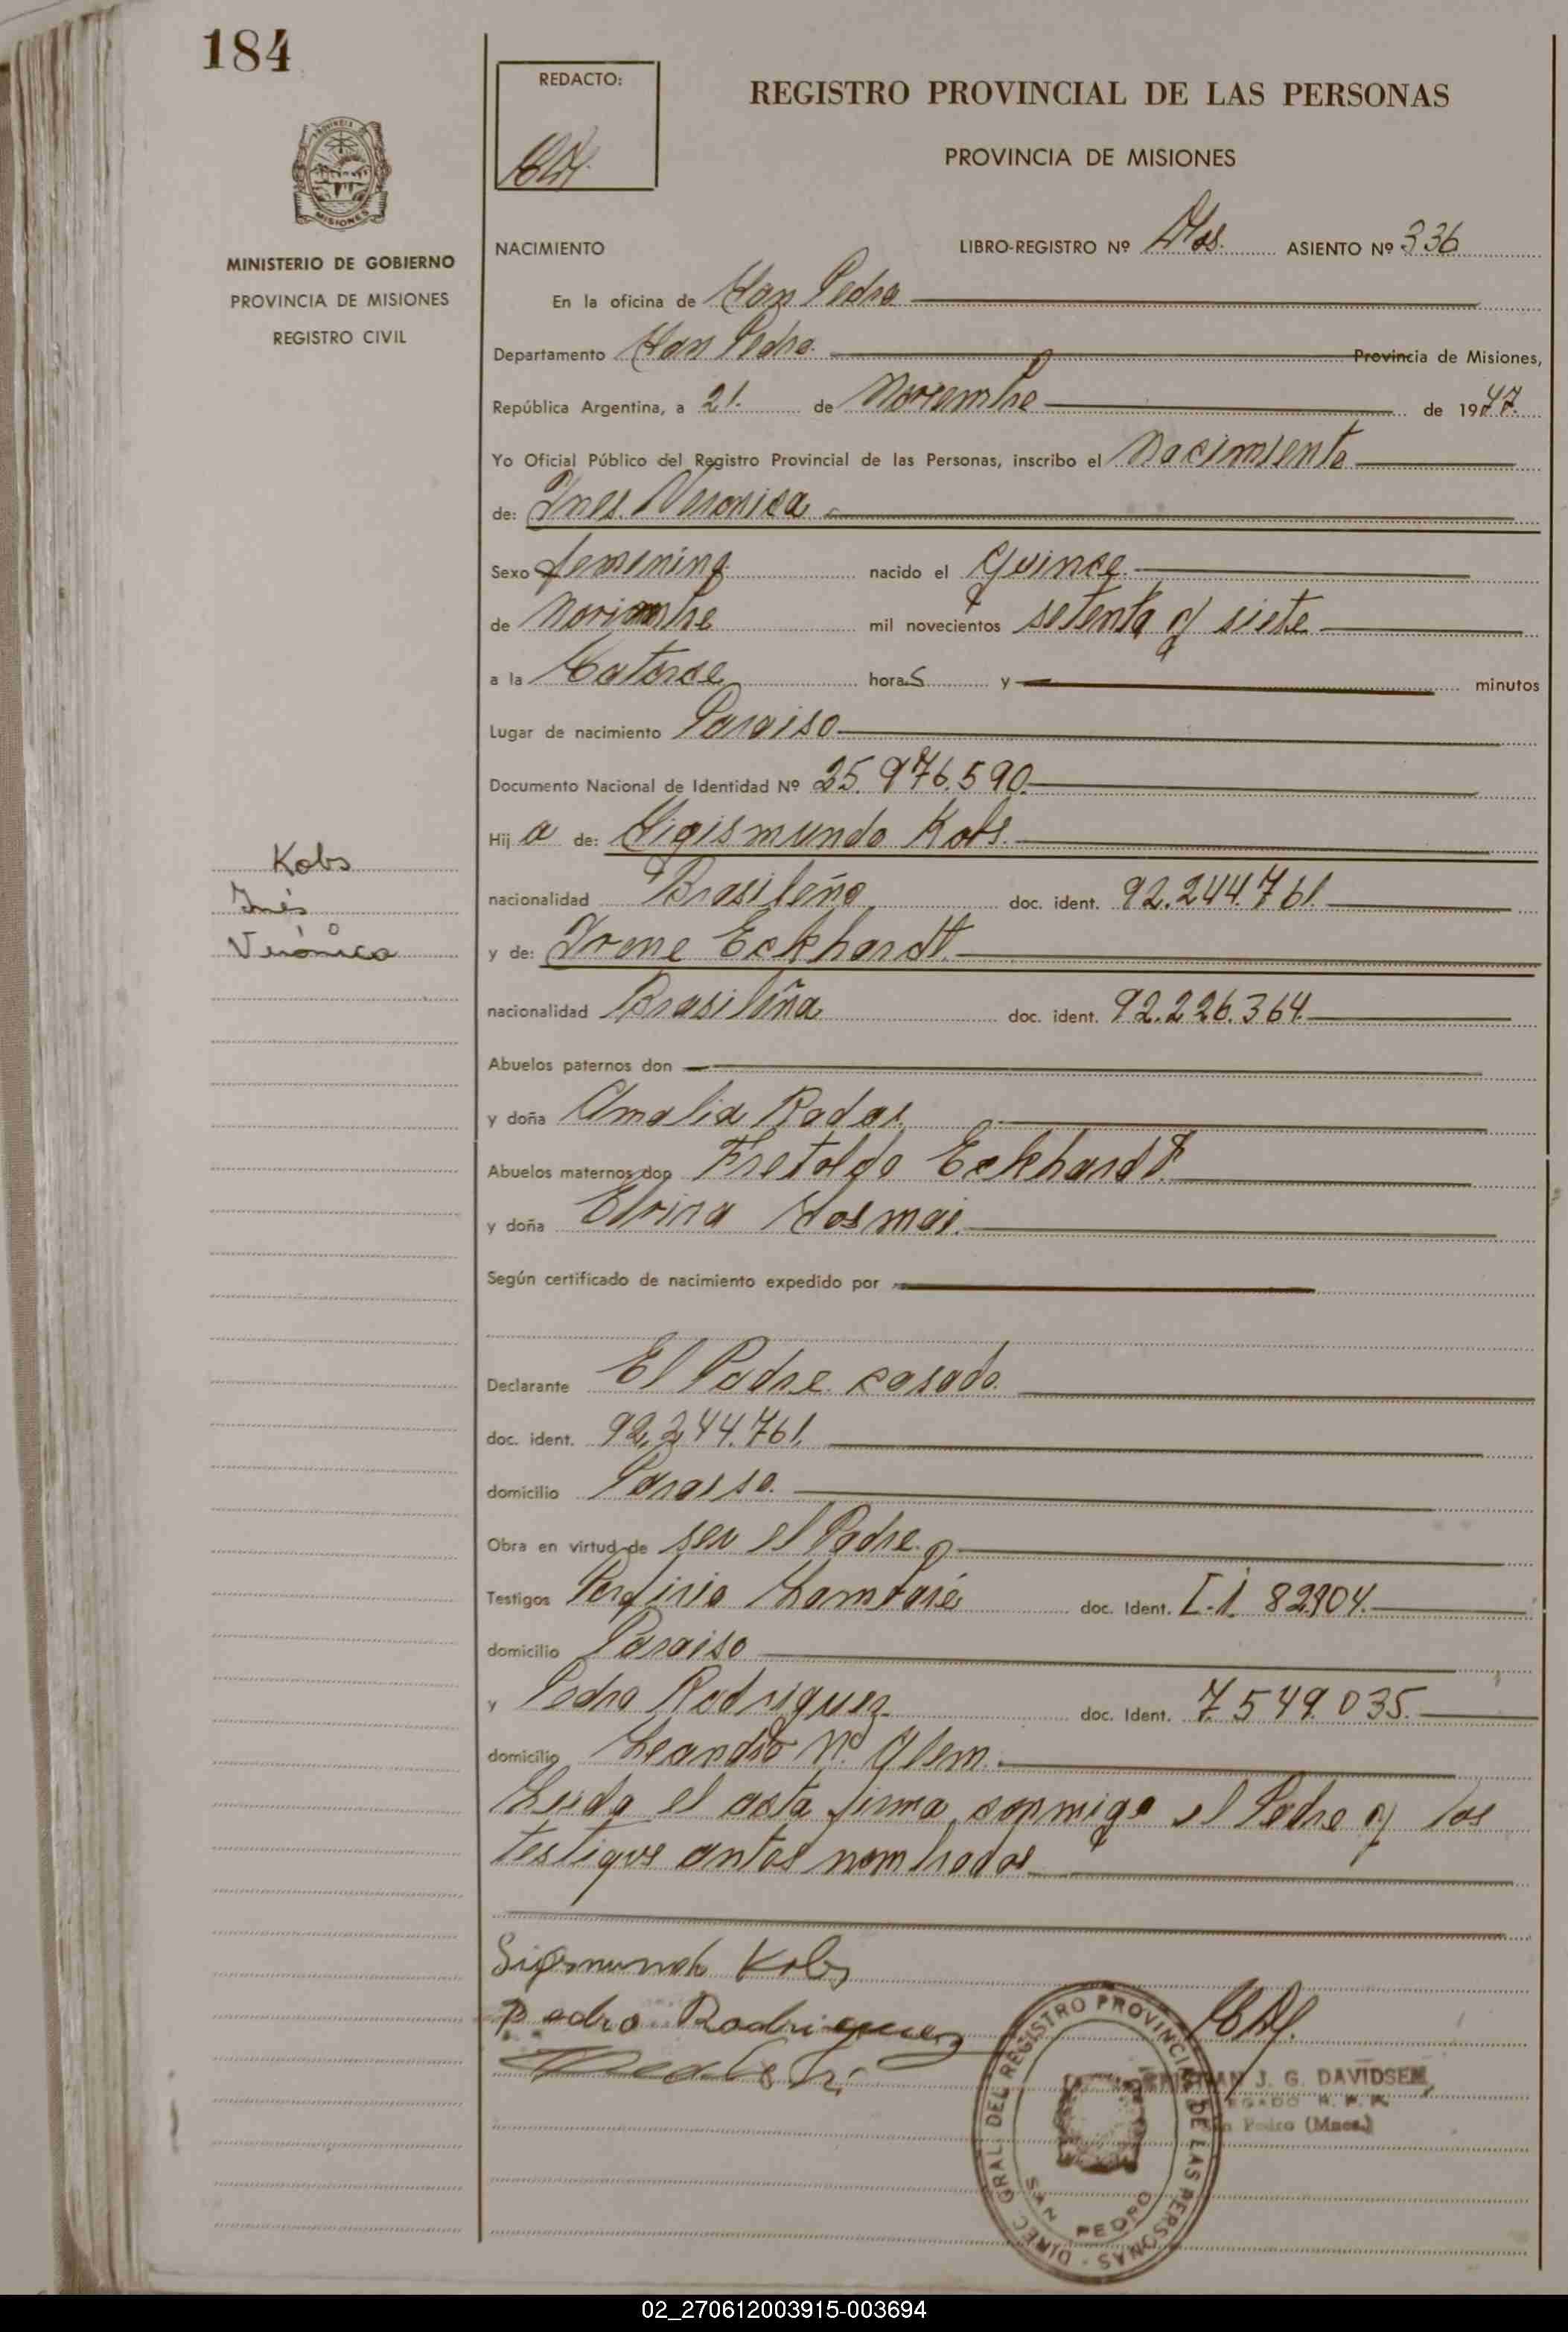 184
REDACTO:
REGISTRO PROVINCIAL DE LAS PERSONAS
PROVINCIA DE MISIONES
PROVINCIA DE
MISIONES
MINISTERIO DE GOBIERNO
PROVINCIA DE MISIONES
REGISTRO CIVIL
NACIMIENTO LIBRO-REGISTRO Nº Dos. ASIENTO Nº 336
En la oficina de San Pedro
Departamento San Pedro. Provincia de Misiones,
República Argentina, a 21. de Noviembre de 1977.
Yo Oficial Público del Registro Provincial de las Personas, inscribo el Nacimiento
de: Ines Veronica
Sexo femenino nacido el Quince
de Noviembre mil novecientos setenta y siete
a la Catorce horas y minutos
Lugar de nacimiento Paraiso
Documento Nacional de Identidad Nº 25.976.590.
Hij a de: Sigismundo Kobs.
Kobs
Inés
Verónica
nacionalidad Brasileño doc. ident. 92.244.761.
y de: Irene Eckhardt.
nacionalidad Brasileña doc. ident. 92.226.364.
Abuelos paternos don
y doña Amalia
Abuelos maternos don Fretoldo Eckhardt.
y doña Elvira
Según certificado de nacimiento expedido por
Declarante El Padre casado.
doc. ident. 92.244.761.
domicilio Paraiso.
Obra en virtud de ser el Padre.
Testigos Porfirio doc. Ident. C.I. 82904.
domicilio Paraiso
y Pedro Rodriguez doc. Ident. 7.549.035.
domicilio Leandro N. Alem.
Leida el acta firma conmigo el Padre y los
testigos antes nombrados
Sigismundo Kobs
Pedro Rodriguez
DIREC. GRAL. DEL REGISTRO PROVINCIAL DE LAS PERSONAS -
SAN PEDRO
J. G. DAVIDSEN
Pedro (Mnes.)
02_270612003915-003694